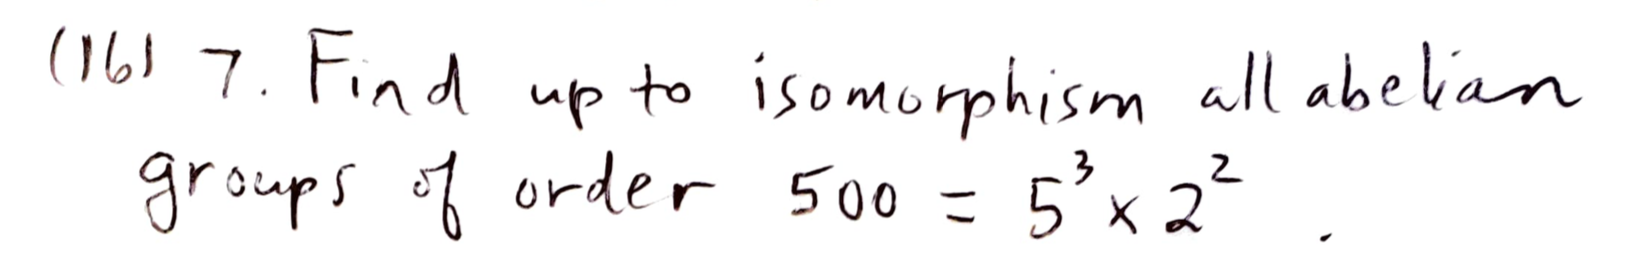 (16) 7. Find up to isomorphism all abelian
groups of order 500 = 5³ × 2² .